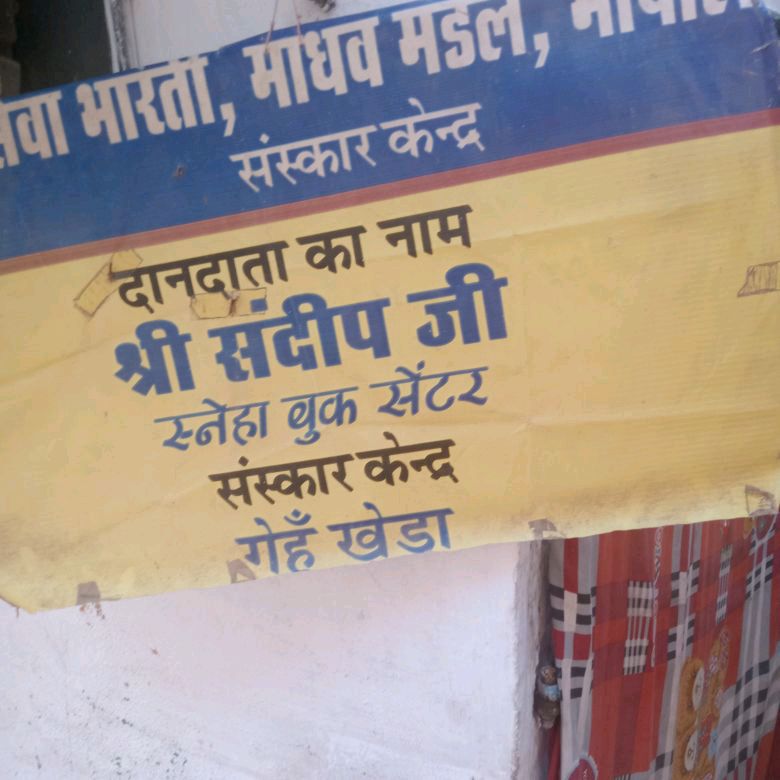 सेवा भारती, माधव मंडल, भोपाल
संस्कार केन्द्र
दानदाता का नाम
श्री संदीप जी
स्नेहा बुक सेंटर
संस्कार केन्द्र
गेहूँ खेडा